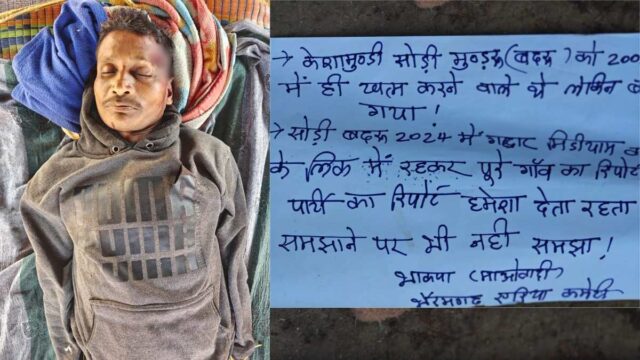 → केशामुण्डी सोड़ी मुण्ड्रू (बदरू) को 200
में ही खत्म करने वाले थे लेकिन
गया!
→ सोड़ी बदरू 2024 में गद्दार मिडीयाम
के लिंक में रहकर पुरे गाँव का रिपोर्ट
पार्टी का रिपोर्ट हमेशा देता रहता
समझाने पर भी नही समझा!
भाकपा (माओवादी)
भैरमगढ़ एरिया कमेटी